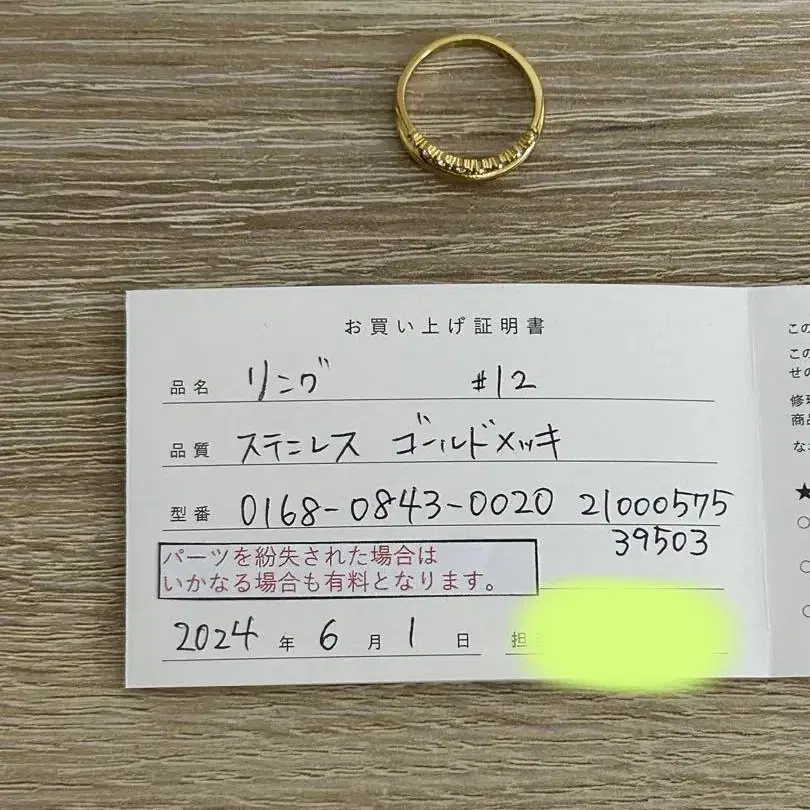 お買い上げ証明書
品名 リング #12
品質 ステンレス ゴールドメッキ
型番 0168-0843-0020 21000575
39503
パーツを紛失された場合は
いかなる場合も有料となります。
2024 年 6 月 1 日 担
この
この
せの
修理
商品
な
★